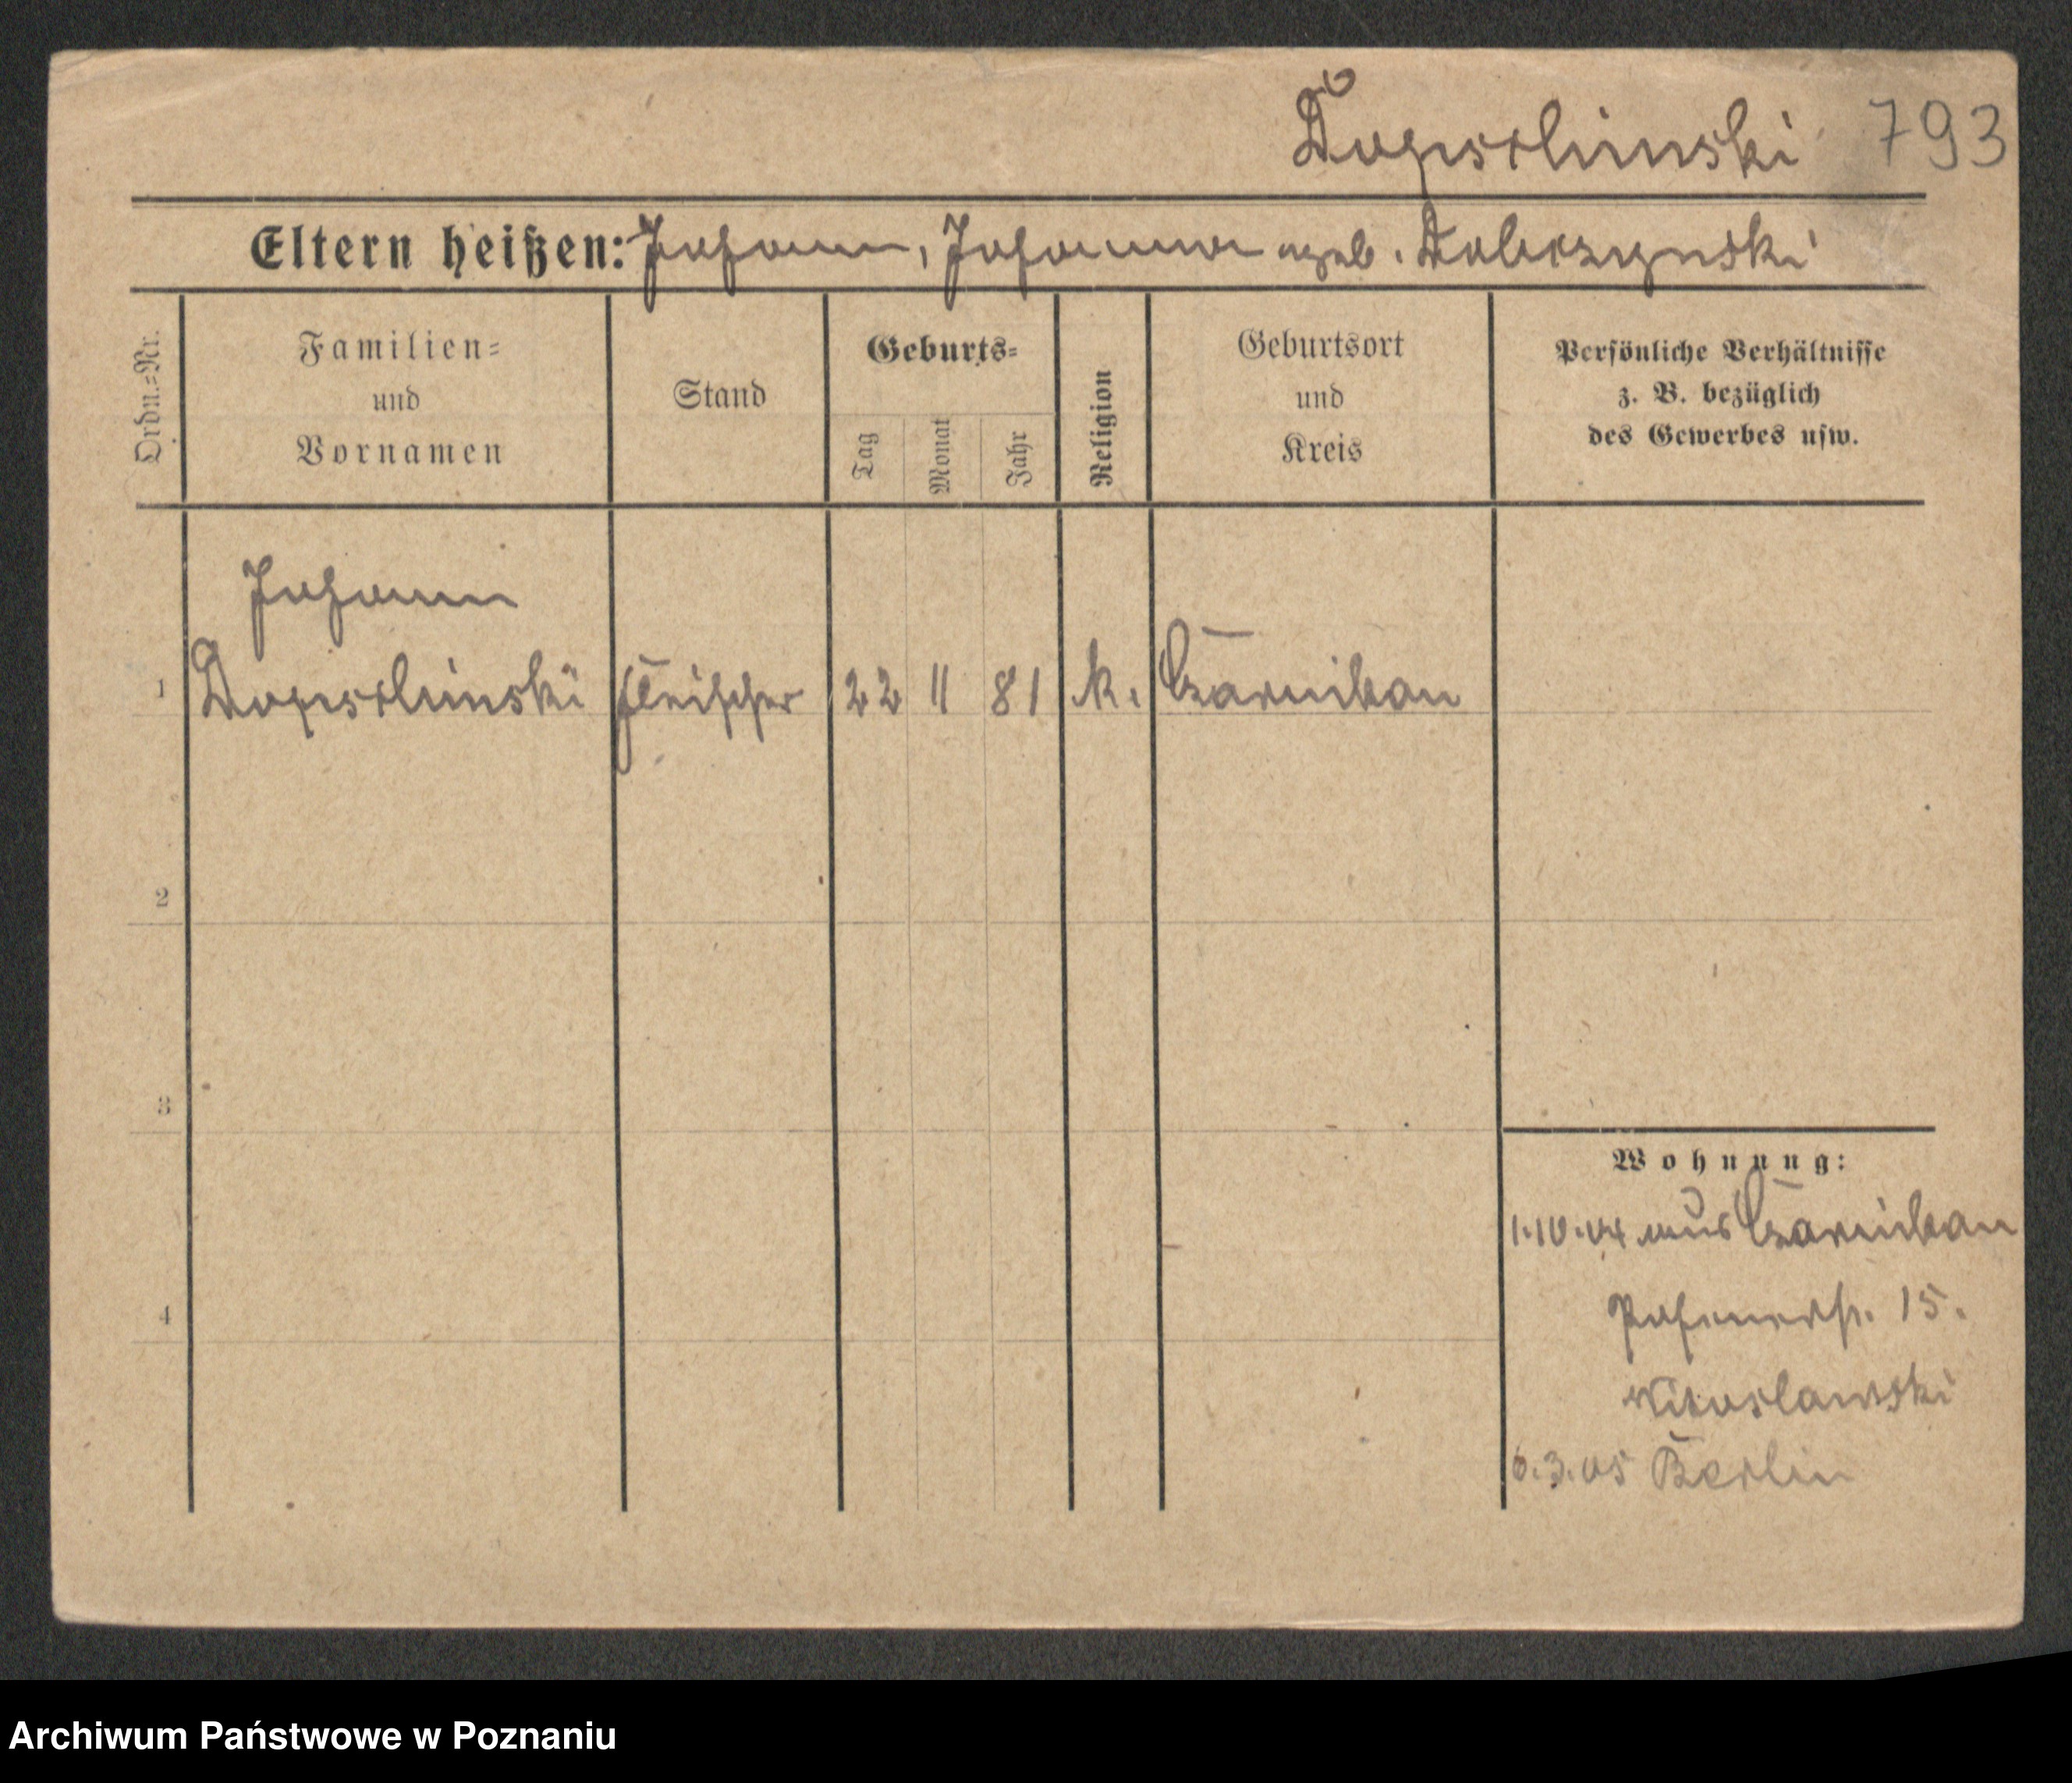 Dopeslinski 793
Eltern heißen: Johann, Johanna geb. Dobrzynski
Ordn.-Nr.
Familien-
und
Vornamen
Stand
Geburts-
Tag
Monat
Jahr
Religion
Geburtsort
und
Kreis
Persönliche Verhältnisse
z. B. bezüglich
des Gewerbes usw.
Johann
1 Fleischer 22 11 81 k. Czarnikau
2
3
4
Wohnung:
1.10.04 aus Czarnikau
Posenerstr. 15.
6.3.05 Berlin
Archiwum Państwowe w Poznaniu